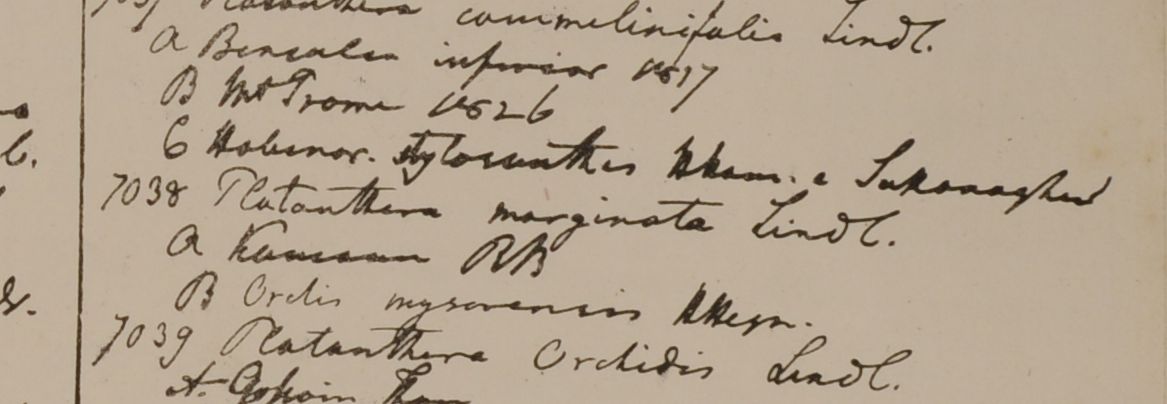 7037 Platanthera commelinifolia Lindl.
A Bengalea inferior 1817
B Mt Prome 1826
C Habenar. stylosanthes HHam. e Sukanaghur
7038 Platanthera marginata Lindl.
A Kamaon RB
B Orchis mysorensis HHeyn.
7039 Platanthera Orchidis Lindl.
A. Gossain Than